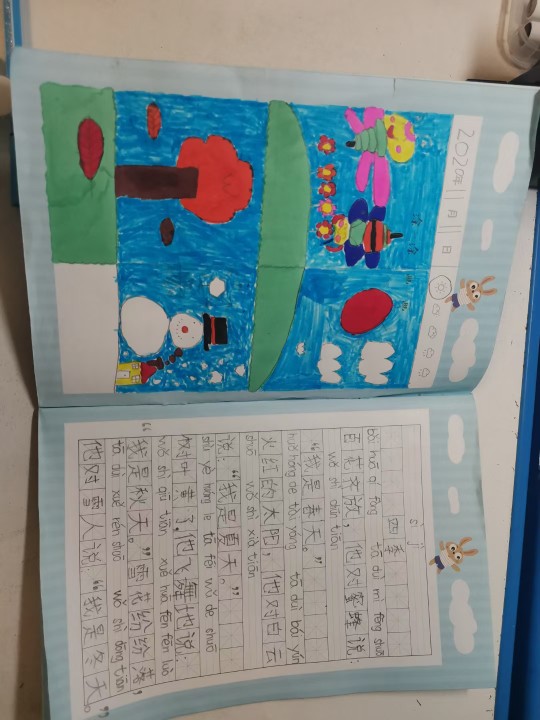 2020年11月11日
sì jì
四季
bǎi huā qí fàng tā duì mì fēng shuō
百花齐放，他对蜜蜂说：
wǒ shì chūn tiān
“我是春天。”
huǒ hóng de tài yáng tā duì bái yún
火红的太阳，他对白云
shuō wǒ shì xià tiān
说：“我是夏天。”
shù yè huáng le tā fēi wǔ de shuō
树叶黄了，他飞舞地说：
wǒ shì qiū tiān xuě huā fēn fēn luò
“我是秋天。”雪花纷纷落，
tā duì xuě rén shuō wǒ shì dōng tiān
他对雪人说：“我是冬天。”